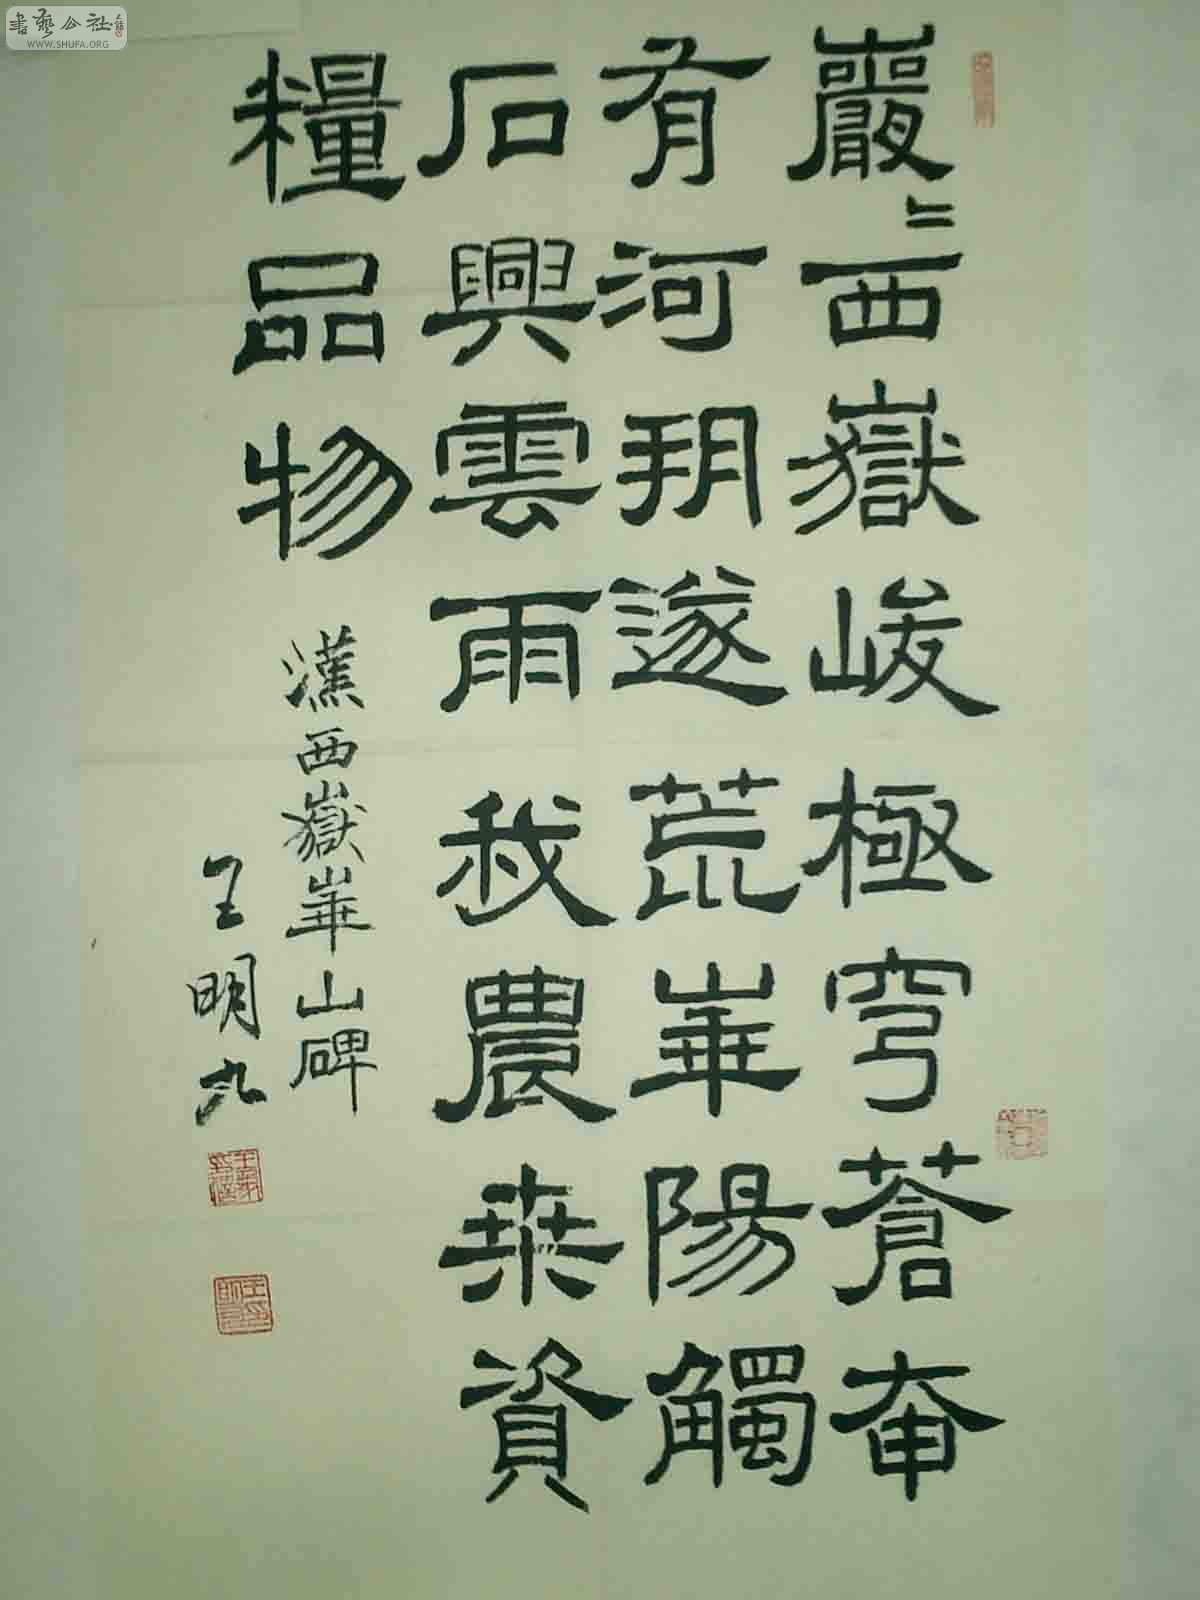 書藝公社
WWW.SHUFA.ORG
巖〻西嶽峻極穹蒼奄
有河朔遂荒崋陽觸
石興雲雨我農桒資
糧品物
漢西嶽崋山碑
王明九